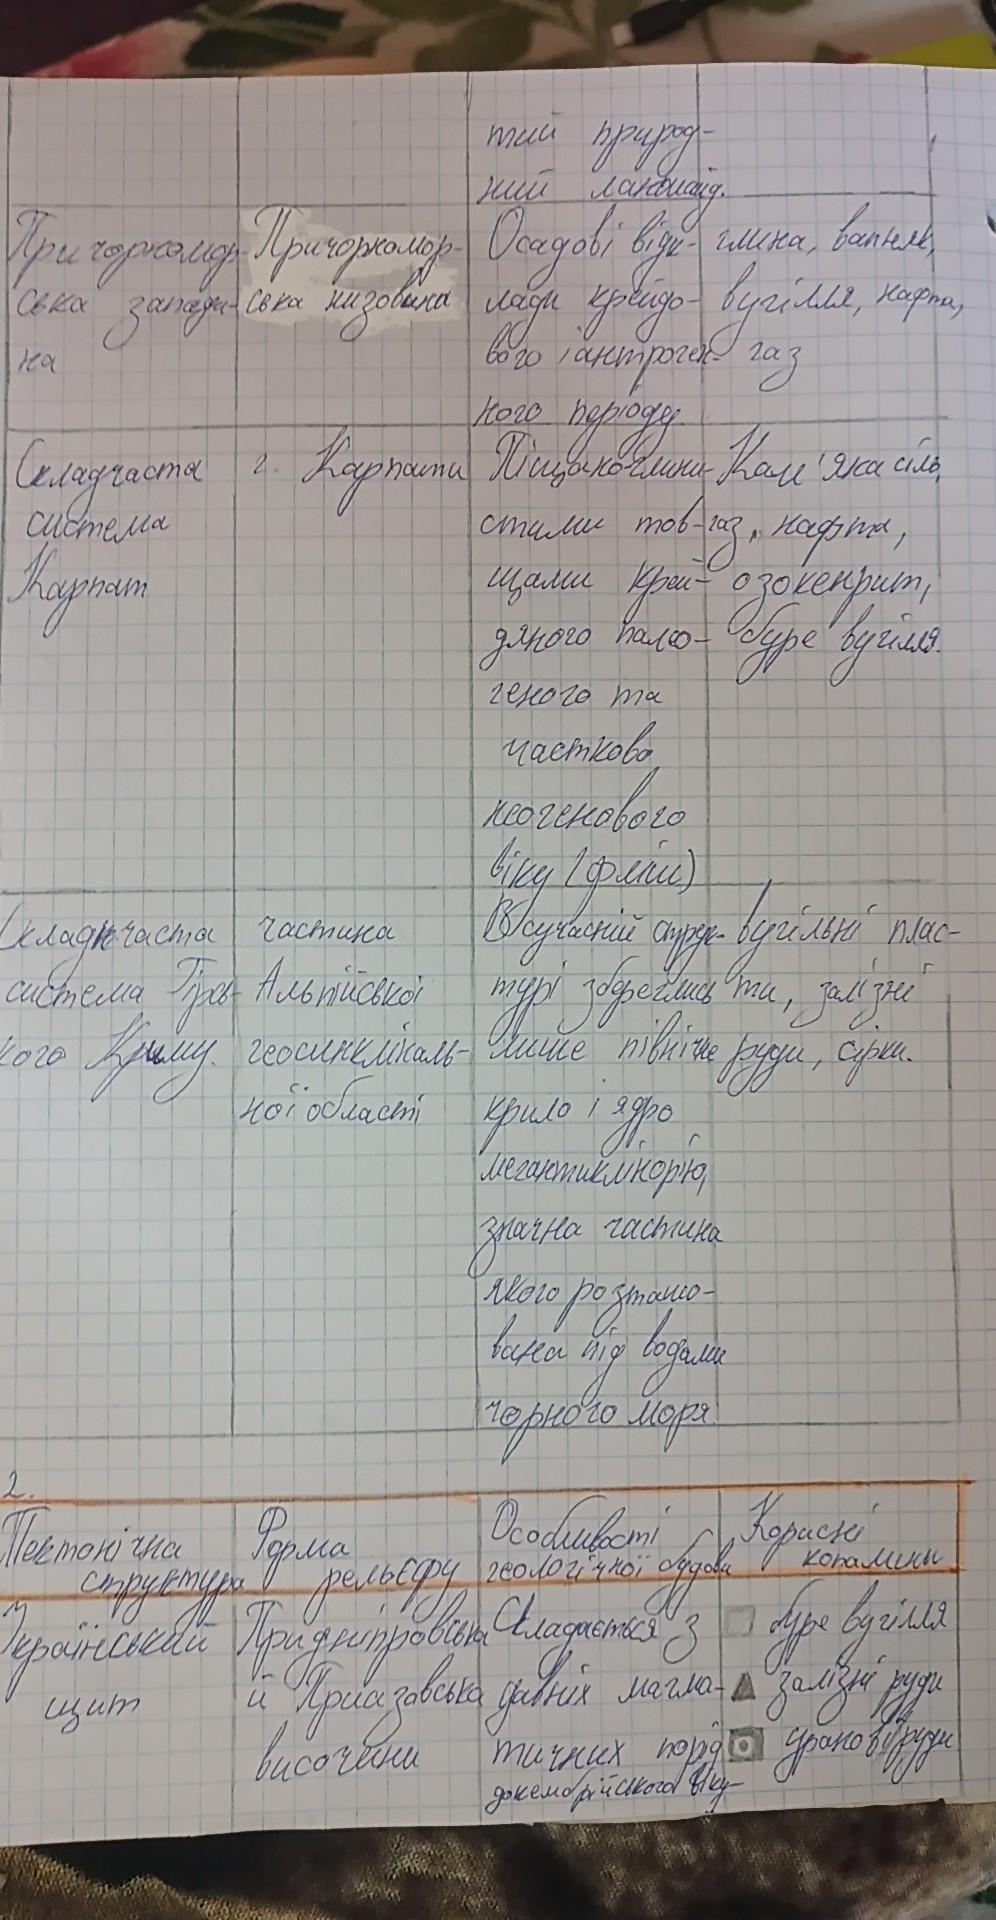 тий природ-
ний ландшафт.
Причорномор-
ська запади-
на
Причорномор-
ська низовина
Осадові відк-
лади крейдо-
вого і антроген-
ного періоду.
глина, вапняк,
вугілля, нафта,
газ
Складчаста
система
Карпат
г. Карпати
Піщано-глини-
стими тов-
щами крей-
дяного палео-
геного та
часткова
неогенового
віку (фліш)
Кам'яна сіль,
газ, нафта,
озокенрит,
буре вугілля.
Складчаста
система Гірсь-
кого Криму.
частина
Альпійської
геосинкліналь-
ної області
В сучасній струк-
турі збереглись
лише північне
крило і ядро
мегантиклінорію,
значна частина
якого розташо-
вана під водами
чорного моря.
вугільні плас-
ти, залізні
руди, сірки.
2.
Тектонічна
структура
Форма
рельєфу
Особливості
геологічної будови
Корисні
копалини
Український
щит
Придніпровська
й Приазовська
височини
Складається з
давніх магма-
тичних порід
докембрійського віку-
буре вугілля
залізні руди
уранові руди